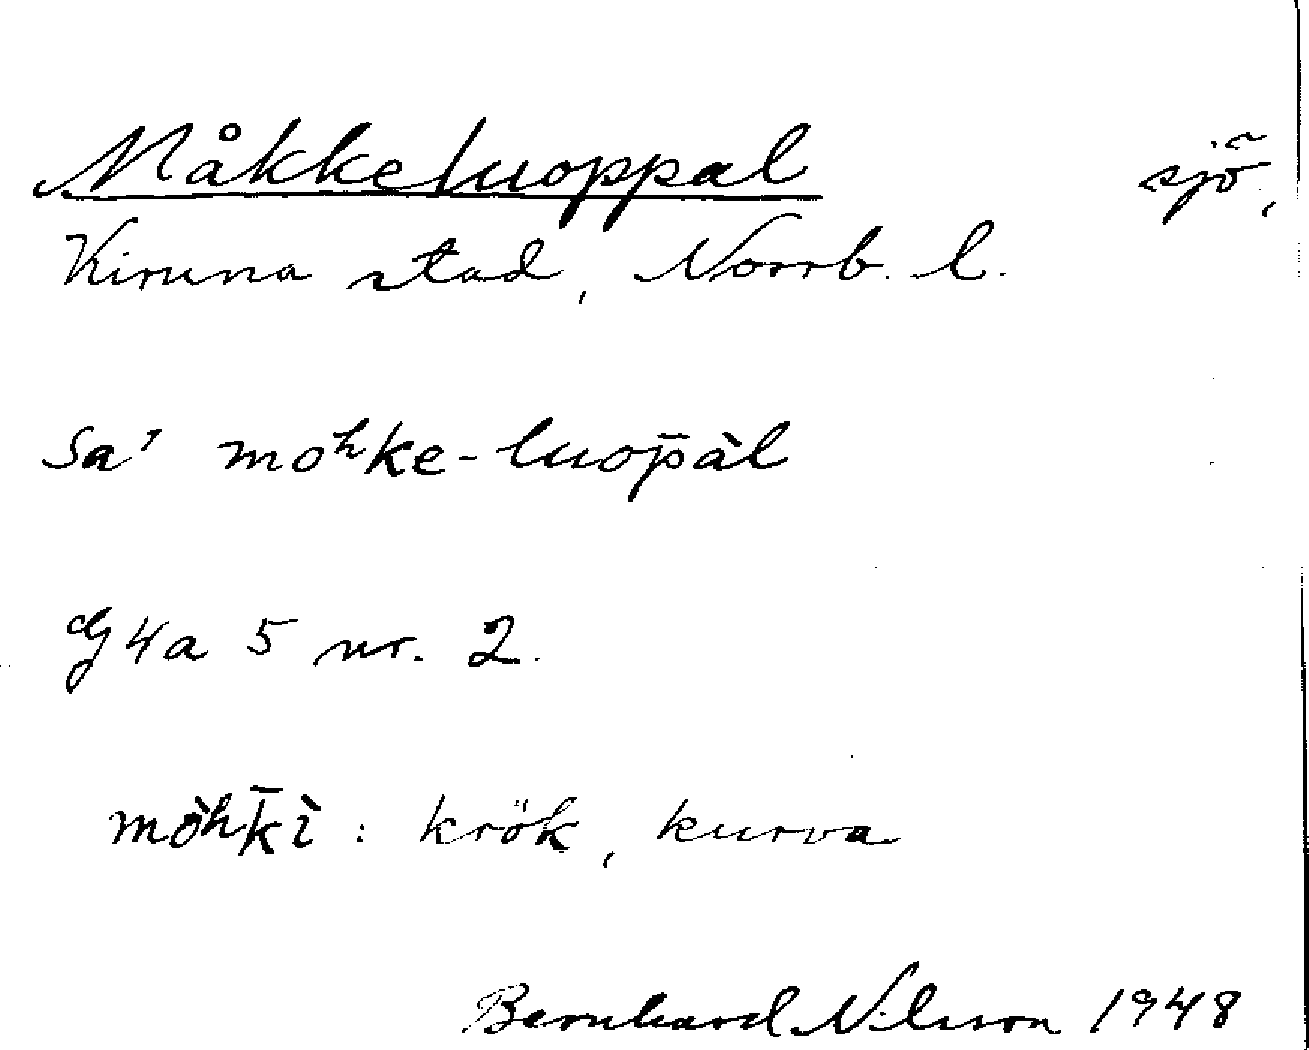 Måkkeluoppal sjö,
Kiruna stad, Norrb. l.
Sa' moʰke-luop̄àl
G 4a 5 nr. 2.
mòʰk̄ì : krök, kurva
Bernhard Nilsson 1948